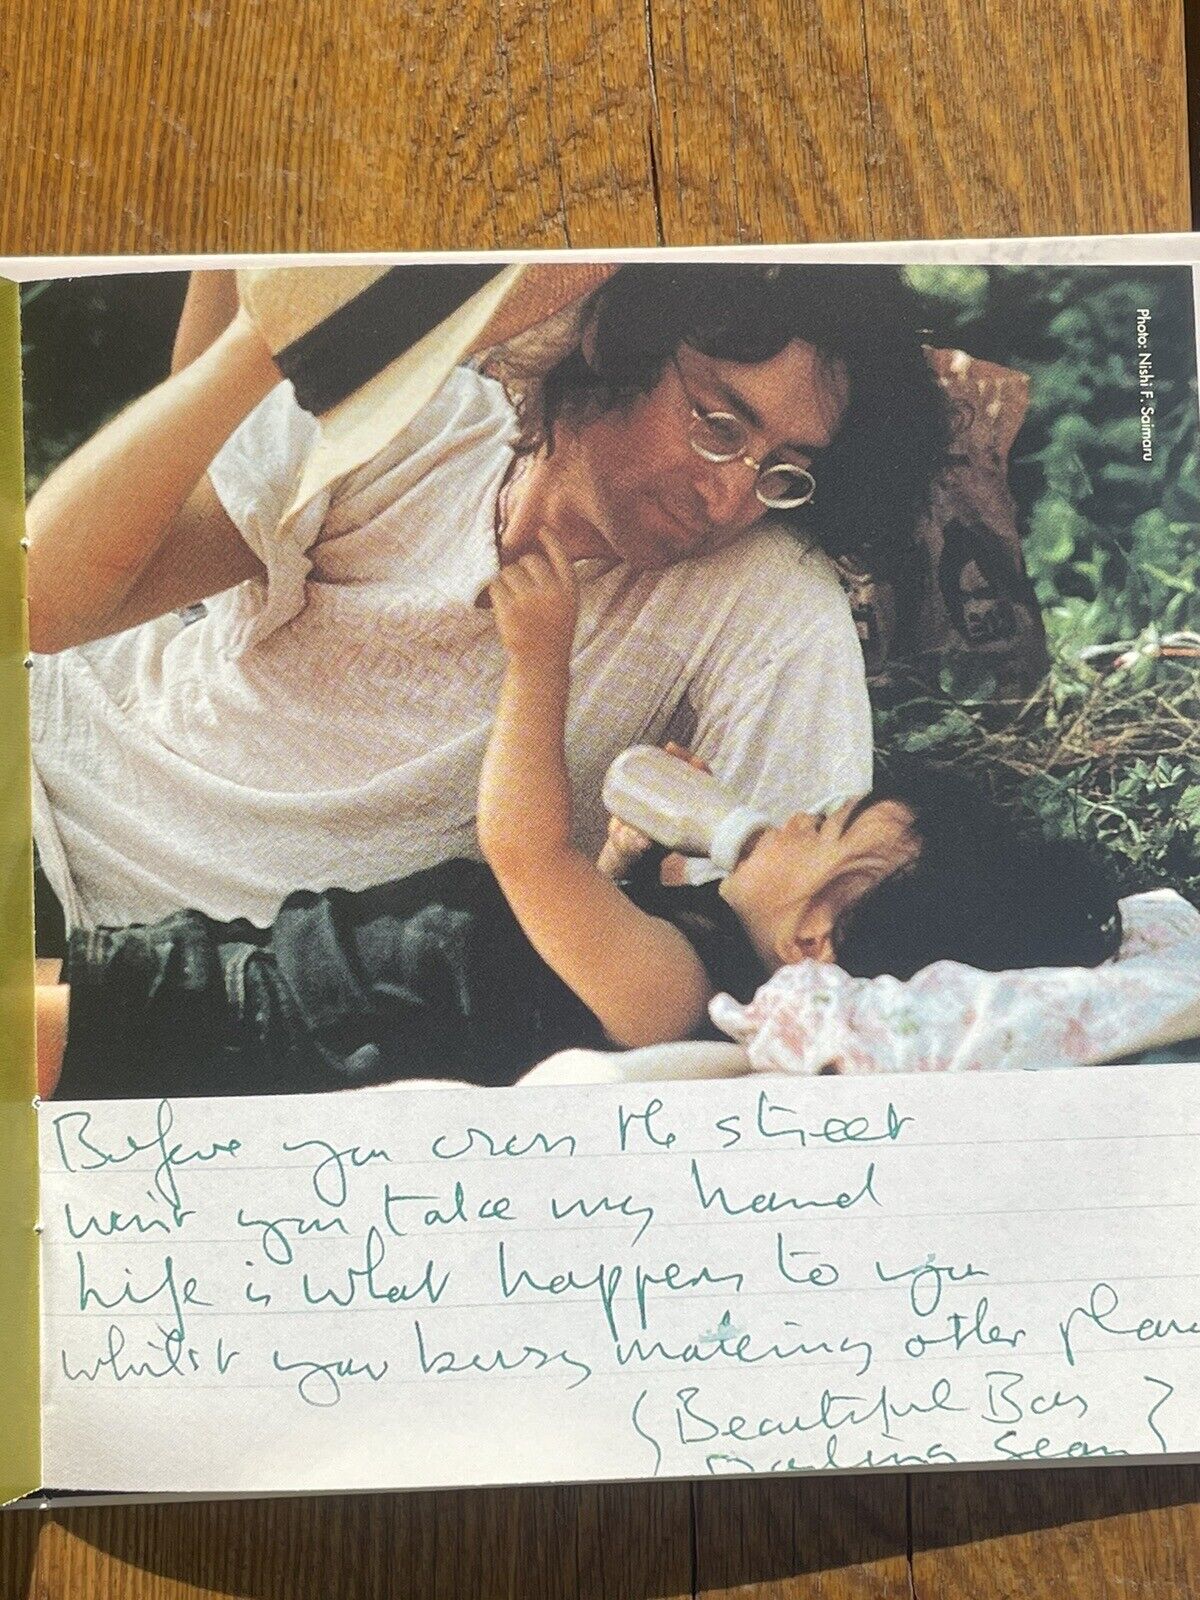 Photo: Nishi F. Saimaru
Before you cross the street
wont you take my hand
Life is what happens to you
whilst your busy making other plans
{Beautiful Boy
Darling Sean}